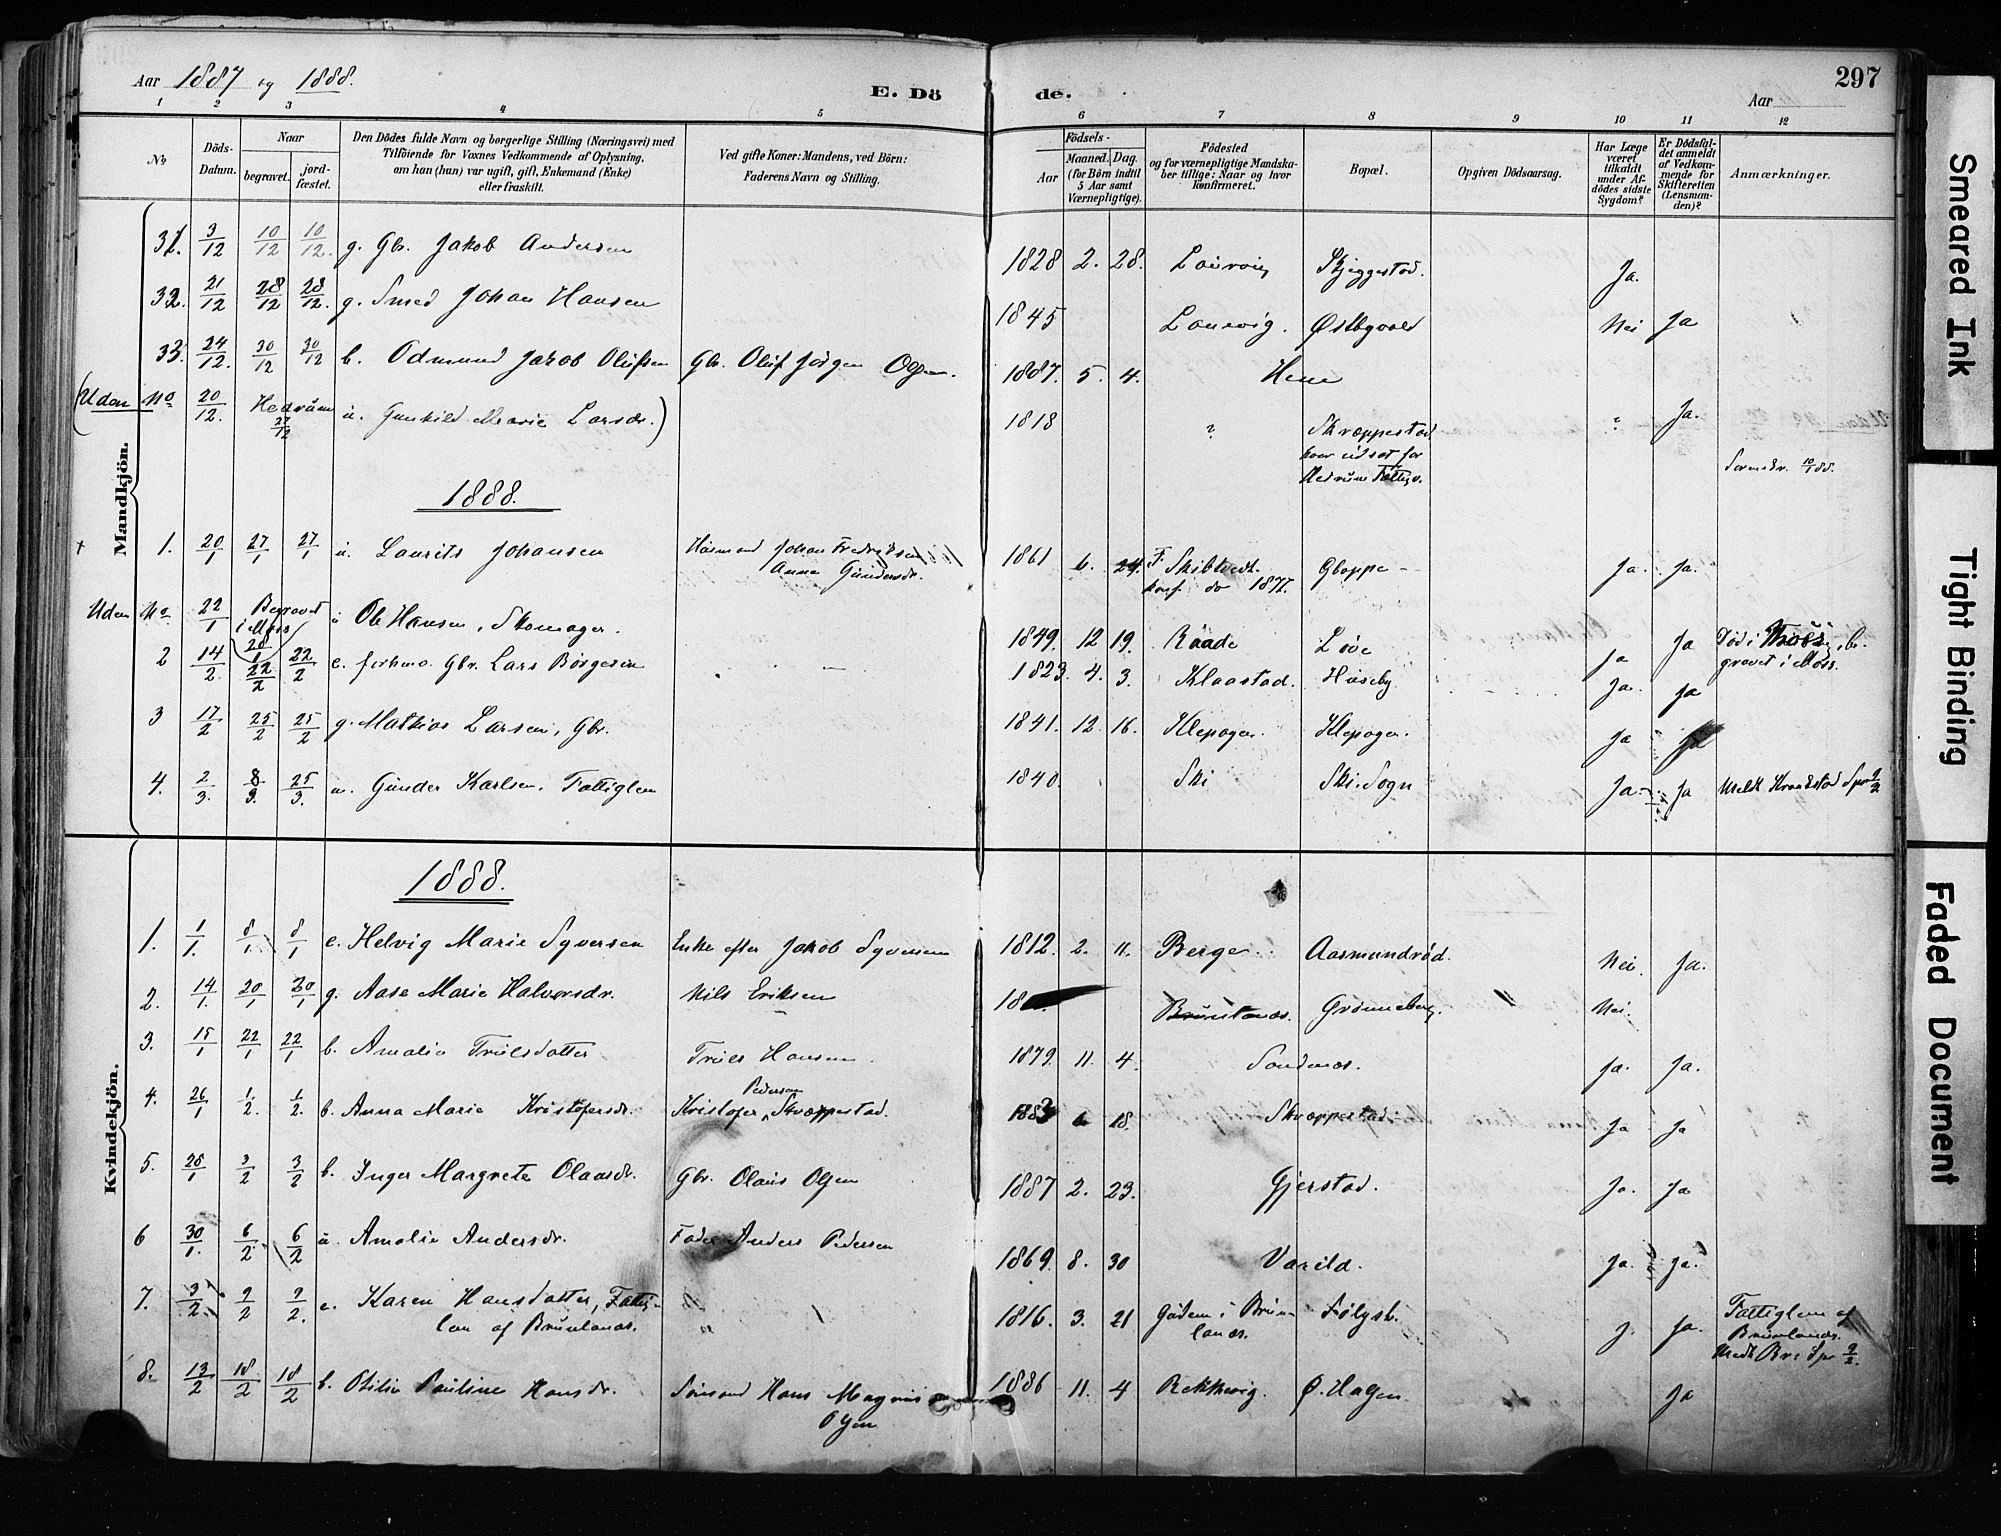 Aar 1887 og 1888.
E. Dö
de.
Aar
297
1 2 3 4 5 6 7 8 9 10 11 12
No
Döds-Datum.
Naar
begravet.
jord-fæstet.
Den Dödes fulde Navn og borgerlige Stilling (Næringsvei) med
Tilföiende for Voxnes Vedkommende af Oplysning,
om han (hun) var ugift, gift, Enkemand (Enke)
eller fraskilt.
Ved gifte Koner: Mandens, ved Börn:
Faderens Navn og Stilling.
Födsels-
Aar
Maaned. Dag.
(for Börn indtil
5 Aar samt
Værnepligtige).
Födested
og for værnepligtige Mandska-
ber tillige: Naar og hvor
konfirmeret.
Bopæl.
Opgiven Dödsaarsag.
Har Læge
været
tilkaldt
under Af-
dödes sidste
Sygdom?
Er Dödsfal-
det anmeldt
af Vedkom-
mende for
Skifteretten
(Lensman-
den)?
Anmærkninger.
Mandkjön.
31. 3/12 10/12 10/12 g. Gbr. Jakob Andersen 1828 2. 28. Laurvig Skjeggestad. Ja.
32. 21/12 28/12 28/12. g. Smed Johan Hansen 1845 Laurvig. Nei Ja
33. 24/12. 30/12 30/12 b. Odmund Jakob Olufsen Gbr. Oluf Jörgen Olsen. 1887. 5. 4. Hem
(Uden No 20/12. Hedrum 27/12 u. Gunhild Marie Larsdr.) 1818 ? Skræppestad ? Ja.
hvor udsat for
Hedrum Fattigv.
1888.
+ 1. 20/1 27/1 27/1 u. Laurits Johansen Husmand Johan Fredriksen 1861 6. 24. Skibtvedt. Gloppe Ja. Ja.
Anna Gundersdr. konf. do 1877.
Uden No 22/1 Begravet i Moss 28/1 u Ole Hansen, Skomager. 1849. 12 19. Raade Löve Ja Ja Död i be-
gravet i Moss.
2 14/2. 22/2 22/2 e. forhv. Gbr. Lars Börgesen 1823. 4. 3. Klaastad. Huseby Ja. Ja
3 17/2 25/2 25/2 g. Mathias Larsen, Gbr. 1841. 12. 16. Klepager. Klepager. Ja Ja
4. 2/3. 8/3. 25/3. u. Gunder Karlsen, Fattiglem 1840. Ski Ski Sogn Ja. Ja Meldt Kraakstad Spr
Kvindekjön.
1888.
1. 1/1. 8/1. 8/1 e. Helvig Marie Syversen Enke efter Jakob Syversen 1812. 2. 11. Berge. Aasmundröd. Nei. Ja.
2. 14/1. 20/1 20/1 g. Aase Marie Halvorsdr. Nils Eriksen 18 Brunlanæs. Grönneberg. Nei.
3. 15/1 22/1 22/1 b. Amalie Trulsdatter Truls Hansen 1879. 11. 4. Sandenæs. Ja. Ja.
4. 26/1 1/2. 1/2. b. Anna Marie Kristofersdr. Kristofer Pedersen Skræppestad. 1883 6 18. Skræppestad. Ja Ja
5. 28/1 3/2 3/2 b. Inger Margrete Olausdr. Gbr. Olaus Olsen 1887 2. 23. Gjerstad. Ja. Ja
6 30/1. 6/2 6/2 u. Amalie Andersdr. Fader Anders Pedersen 1869. 8. 30 Varild. Ja. Ja.
7. 3/2. 9/2 9/2. e. Karen Hansdatter, Fattig- 1816. 3. 21 i Brun- J. Ja. Fattiglem af
lem af Brunlanæs. lanæs. Brunlanæs.
8. 13/2 18/2 18/2 b. Otilie Pauline Hansdr. Sömand Hans Magnus 1886 11. 4 Rekkevig. Ö. Hagen Ja
Olsen
Smeared Ink
Tight Binding
Faded Document